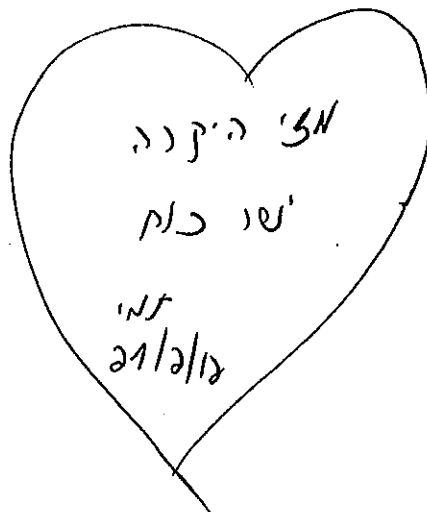 מצי היקרה
ישר כוח
תמי
21/2/12